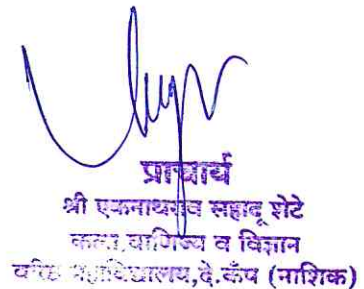 प्राचार्य
श्री एकनाथराव सहादू शेटे
कला, वाणिज्य व विज्ञान
वरिष्ठ महाविद्यालय,दे.कँप (नाशिक)